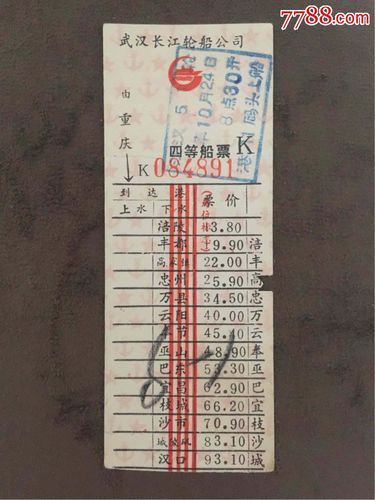 7788.com
武汉长江轮船公司
汉 5
年10月24日
8点30开
港 码头上船
由
重庆
四等船票 K
K 084891
到达港
上水 下水
票价
涪陵 13.80
丰都 19.90 涪
高家镇 22.00 丰
忠州 25.90 高
万县 34.50 忠
云阳 40.00 万
奉节 45.40 云
巫山 48.90 奉
巴东 53.30 巫
宜昌 62.90 巴
枝城 66.20 宜
沙市 70.90 枝
城陵矶 83.10 沙
汉口 93.10 城